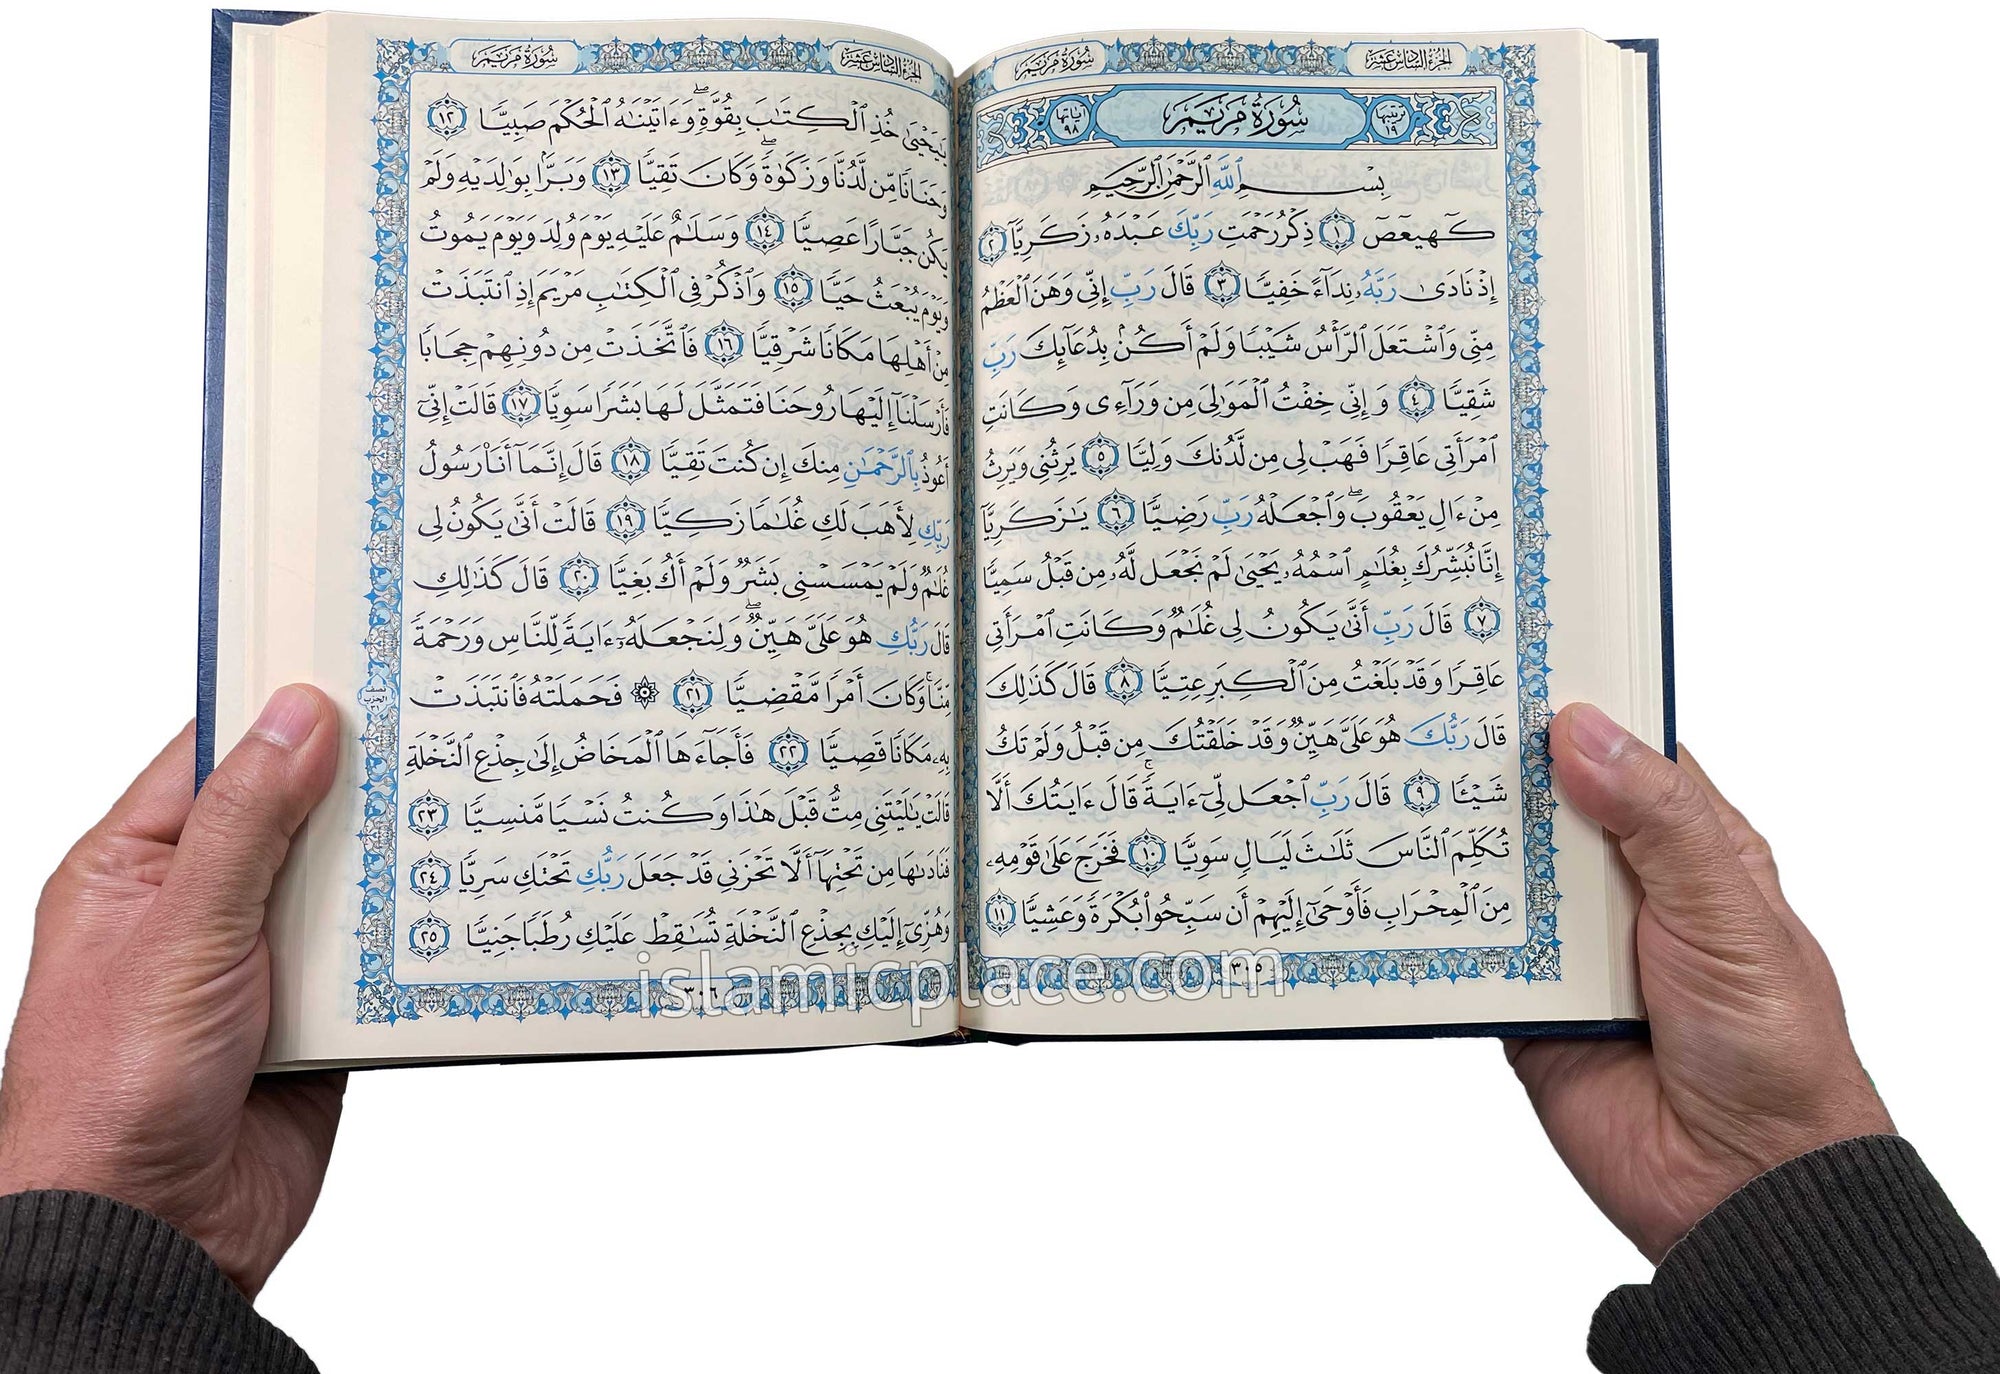 الجزء السادس عشر
سورة مريم
ترتيبها ١٩
سورة مريم
آياتها ٩٨
بِسْمِ ٱللَّهِ ٱلرَّحْمَٰنِ ٱلرَّحِيمِ
كٓهيعٓصٓ ١ ذِكْرُ رَحْمَتِ رَبِّكَ عَبْدَهُۥ زَكَرِيَّآ ٢
إِذْ نَادَىٰ رَبَّهُۥ نِدَآءً خَفِيًّا ٣ قَالَ رَبِّ إِنِّى وَهَنَ ٱلْعَظْمُ
مِنِّى وَٱشْتَعَلَ ٱلرَّأْسُ شَيْبًا وَلَمْ أَكُنۢ بِدُعَآئِكَ رَبِّ
شَقِيًّا ٤ وَإِنِّى خِفْتُ ٱلْمَوَٰلِىَ مِن وَرَآءِى وَكَانَتِ
ٱمْرَأَتِى عَاقِرًا فَهَبْ لِى مِن لَّدُنكَ وَلِيًّا ٥ يَرِثُنِى وَيَرِثُ
مِنْ ءَالِ يَعْقُوبَ ۖ وَٱجْعَلْهُ رَبِّ رَضِيًّا ٦ يَٰزَكَرِيَّآ
إِنَّا نُبَشِّرُكَ بِغُلَٰمٍ ٱسْمُهُۥ يَحْيَىٰ لَمْ نَجْعَل لَّهُۥ مِن قَبْلُ سَمِيًّا
٧ قَالَ رَبِّ أَنَّىٰ يَكُونُ لِى غُلَٰمٌ وَكَانَتِ ٱمْرَأَتِى
عَاقِرًا وَقَدْ بَلَغْتُ مِنَ ٱلْكِبَرِ عِتِيًّا ٨ قَالَ كَذَٰلِكَ
قَالَ رَبُّكَ هُوَ عَلَىَّ هَيِّنٌ وَقَدْ خَلَقْتُكَ مِن قَبْلُ وَلَمْ تَكُ
شَيْـًٔا ٩ قَالَ رَبِّ ٱجْعَل لِّىٓ ءَايَةً ۚ قَالَ ءَايَتُكَ أَلَّا
تُكَلِّمَ ٱلنَّاسَ ثَلَٰثَ لَيَالٍ سَوِيًّا ١٠ فَخَرَجَ عَلَىٰ قَوْمِهِۦ
مِنَ ٱلْمِحْرَابِ فَأَوْحَىٰٓ إِلَيْهِمْ أَن سَبِّحُوا۟ بُكْرَةً وَعَشِيًّا ١١
٣٠٥
الجزء السادس عشر
سورة مريم
يَٰيَحْيَىٰ خُذِ ٱلْكِتَٰبَ بِقُوَّةٍ ۖ وَءَاتَيْنَٰهُ ٱلْحُكْمَ صَبِيًّا ١٢
وَحَنَانًا مِّن لَّدُنَّا وَزَكَوٰةً ۖ وَكَانَ تَقِيًّا ١٣ وَبَرًّۢا بِوَٰلِدَيْهِ وَلَمْ
يَكُن جَبَّارًا عَصِيًّا ١٤ وَسَلَٰمٌ عَلَيْهِ يَوْمَ وُلِدَ وَيَوْمَ يَمُوتُ
وَيَوْمَ يُبْعَثُ حَيًّا ١٥ وَٱذْكُرْ فِى ٱلْكِتَٰبِ مَرْيَمَ إِذِ ٱنتَبَذَتْ
مِنْ أَهْلِهَا مَكَانًا شَرْقِيًّا ١٦ فَٱتَّخَذَتْ مِن دُونِهِمْ حِجَابًا
فَأَرْسَلْنَآ إِلَيْهَا رُوحَنَا فَتَمَثَّلَ لَهَا بَشَرًا سَوِيًّا ١٧ قَالَتْ إِنِّىٓ
أَعُوذُ بِٱلرَّحْمَٰنِ مِنكَ إِن كُنتَ تَقِيًّا ١٨ قَالَ إِنَّمَآ أَنَا۠ رَسُولُ
رَبِّكِ لِأَهَبَ لَكِ غُلَٰمًا زَكِيًّا ١٩ قَالَتْ أَنَّىٰ يَكُونُ لِى
غُلَٰمٌ وَلَمْ يَمْسَسْنِى بَشَرٌ وَلَمْ أَكُ بَغِيًّا ٢٠ قَالَ كَذَٰلِكِ
قَالَ رَبُّكِ هُوَ عَلَىَّ هَيِّنٌ ۖ وَلِنَجْعَلَهُۥٓ ءَايَةً لِّلنَّاسِ وَرَحْمَةً
مِّنَّا ۚ وَكَانَ أَمْرًا مَّقْضِيًّا ٢١ ۞ فَحَمَلَتْهُ فَٱنتَبَذَتْ
بِهِۦ مَكَانًا قَصِيًّا ٢٢ فَأَجَآءَهَا ٱلْمَخَاضُ إِلَىٰ جِذْعِ ٱلنَّخْلَةِ
قَالَتْ يَٰلَيْتَنِى مِتُّ قَبْلَ هَٰذَا وَكُنتُ نَسْيًا مَّنسِيًّا ٢٣
فَنَادَىٰهَا مِن تَحْتِهَآ أَلَّا تَحْزَنِى قَدْ جَعَلَ رَبُّكِ تَحْتَكِ سَرِيًّا ٢٤
وَهُزِّىٓ إِلَيْكِ بِجِذْعِ ٱلنَّخْلَةِ تُسَٰقِطْ عَلَيْكِ رُطَبًا جَنِيًّا ٢٥
نصف
الحزب
٣١
٣٠٦
islamicplace.com